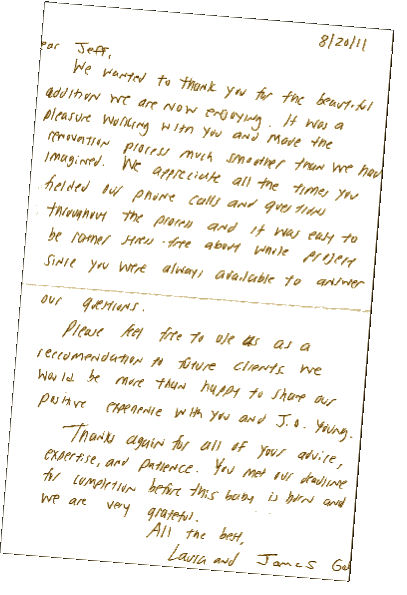 8/20/11
ear Jeff,
We wanted to thank you for the beautiful
addition we are now enjoying. It was a
pleasure working with you and made the
renovation process much smoother than we had
imagined. We appreciate all the times you
fielded our phone calls and questions
throughout the process and it was easy to
be rather stress-free about whole project
since you were always available to answer
our questions.
Please feel free to use us as a
reccomendation to future clients. We
would be more than happy to share our
positive experience with you and J.O. Young.
Thanks again for all of your advice,
expertise, and patience. You met our deadline
for completion before this baby is born and
we are very grateful.
All the best,
Laura and James